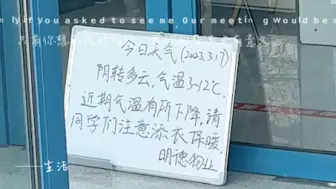 nly if you asked to see me Our meeting Would be
只有你想
今日天气(2023.3.17)
阴转多云,气温3~12℃.
近期气温有所下降,请
同学们注意添衣保暖
明德物业
——生活